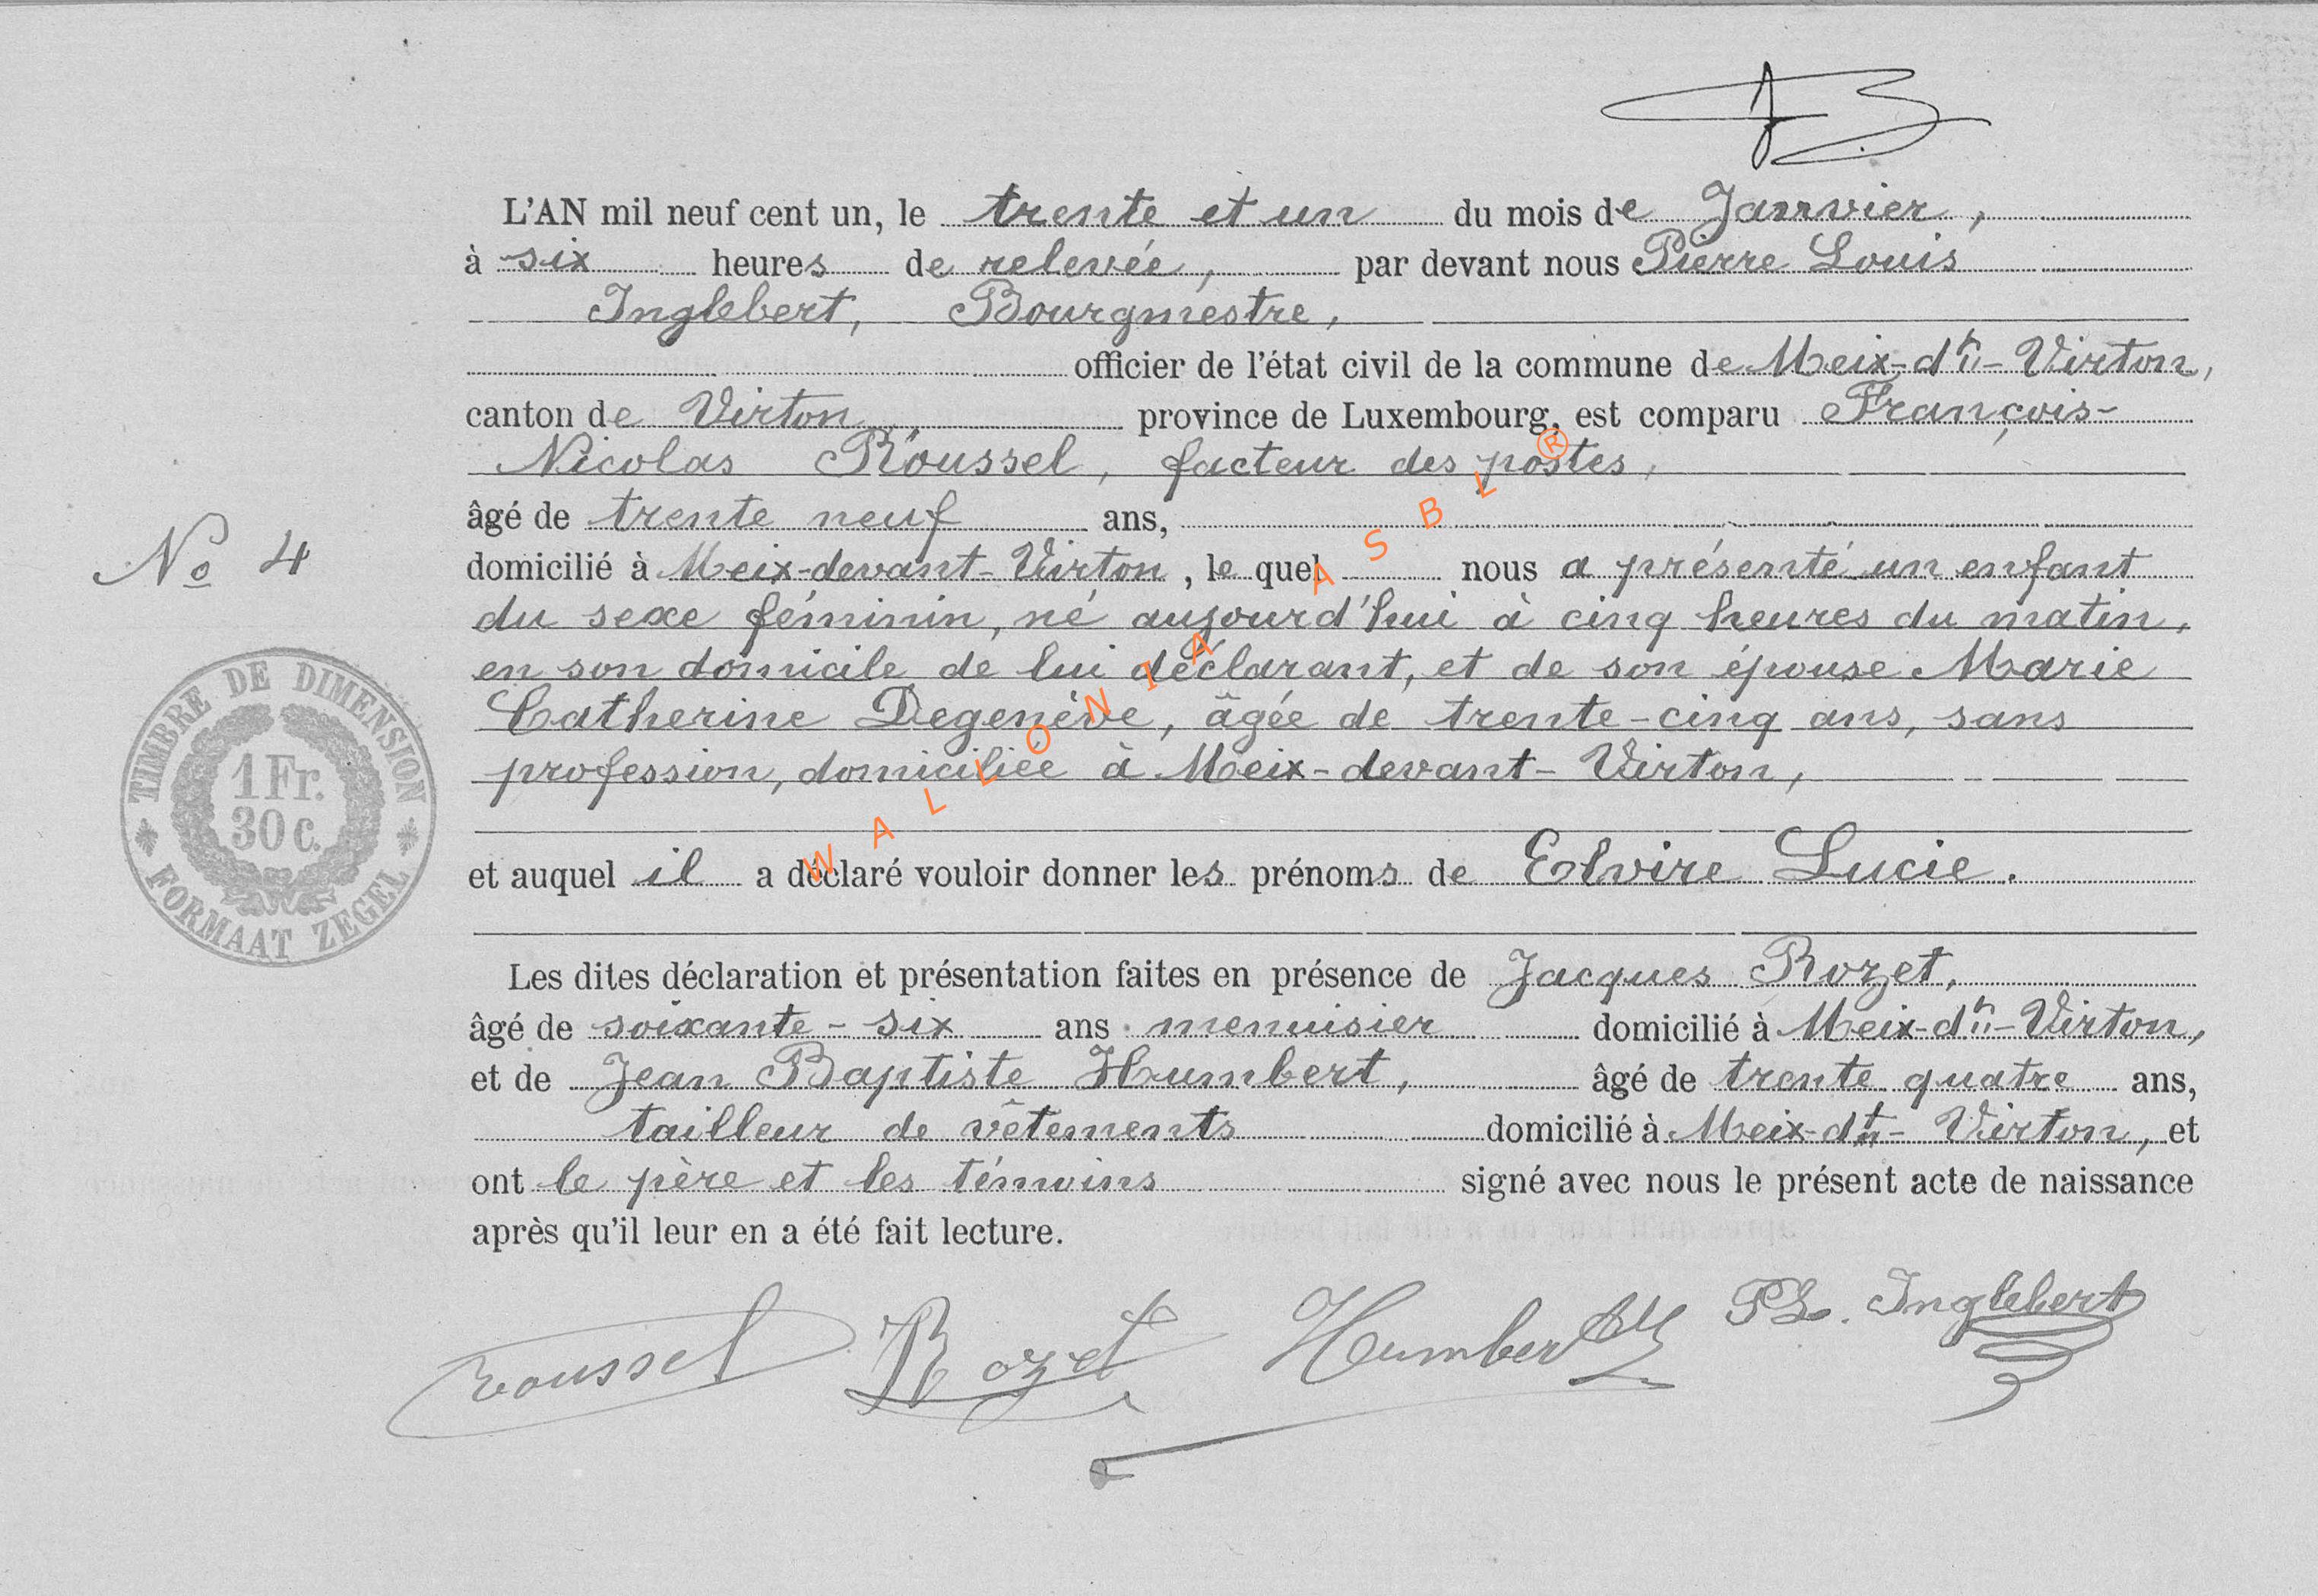 L'AN mil neuf cent un, le trente et un du mois de Janvier,
à six heures de relevée, par devant nous Pierre Louis
Inglebert, Bourgmestre,
officier de l'état civil de la commune de Meix-dt-Virton,
canton de Virton province de Luxembourg, est comparu François-
Nicolas Roussel, facteur des postes,
âgé de trente neuf ans,
domicilié à Meix-devant-Virton, le quel nous a présenté un enfant
du sexe féminin, né aujourd'hui à cinq heures du matin,
en son domicile de lui déclarant, et de son épouse Marie
Catherine Degenève, âgée de trente-cinq ans, sans
profession, domiciliée à Meix-devant-Virton,
et auquel il a déclaré vouloir donner les prénoms de Elvire Lucie.
Les dites déclaration et présentation faites en présence de Jacques Rozet,
âgé de soixante-six ans menuisier domicilié à Meix-dt-Virton,
et de Jean Baptiste Humbert, âgé de trente quatre ans,
tailleur de vêtements domicilié à Meix-dt-Virton, et
ont le père et les témoins signé avec nous le présent acte de naissance
après qu'il leur en a été fait lecture.
No 4
TIMBRE DE DIMENSION
1 Fr.
30 c.
FORMAAT ZEGEL
WALLONIA ASBL ®
Roussel Rozet Humbert PL. Inglebert